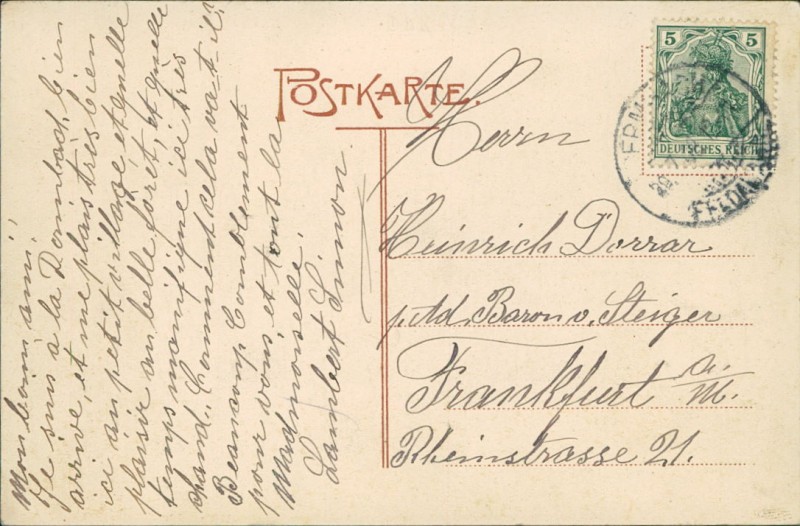 POSTKARTE.
5 5
DEUTSCHES REICH
Mon bom' ami!
Je suis a la Dombach, bien
arrive, et me plais très bien
ici au petit village et quelle
plaisir au belle forêt, et quelle
temps manifique ici tres
chaud. Comment cela va-t-il?
Beaucoup Complement
pour vous, et tout la
Madmoiselle.
Lambert Simon.
Herrn
Heinrich Dorrar
p. Ad. Baron v. Steiger
Frankfurt a. M.
Rheinstrasse 21.